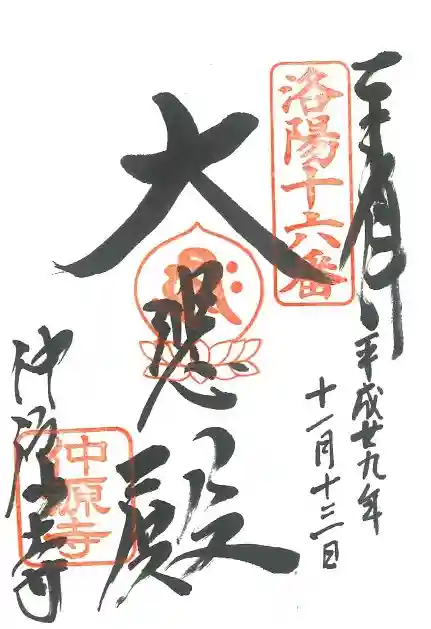 奉拝
平成廿九年
十一月十三日
洛陽十六番
大悲殿
仲源寺
仲原寺